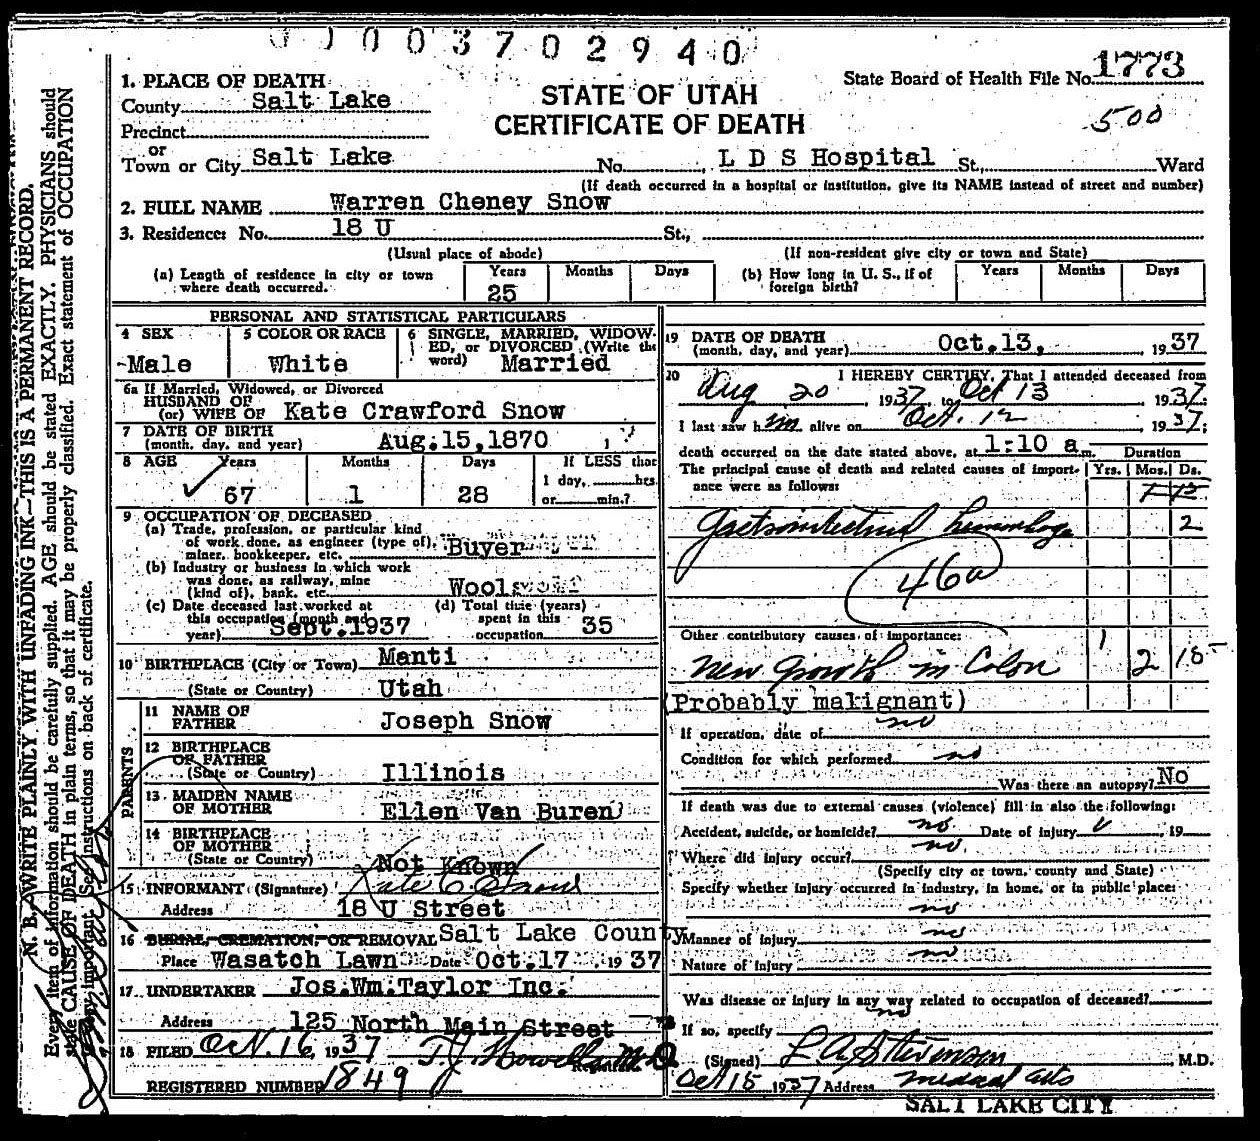 0003702940
State Board of Health File No. 1773
500
STATE OF UTAH
CERTIFICATE OF DEATH
1. PLACE OF DEATH
County Salt Lake
Precinct
or
Town or City Salt Lake No. L D S Hospital St., Ward
(If death occurred in a hospital or institution, give its NAME instead of street and number)
2. FULL NAME Warren Cheney Snow
3. Residence: No. 18 U St.,
(Usual place of abode) (If non-resident give city or town and State)
(a) Length of residence in city or town where death occurred. Years 25 Months Days
(b) How long in U. S., if of foreign birth? Years Months Days
PERSONAL AND STATISTICAL PARTICULARS
4 SEX Male
5 COLOR OR RACE White
6 SINGLE, MARRIED, WIDOWED, or DIVORCED (Write the word) Married
6a If Married, Widowed, or Divorced
HUSBAND OF
(or) WIFE OF Kate Crawford Snow
7 DATE OF BIRTH
(month, day, and year) Aug. 15, 1870 1
8 AGE Years 67 Months 1 Days 28 If LESS than 1 day, hrs. or min.?
9 OCCUPATION OF DECEASED
(a) Trade, profession, or particular kind
of work done, as engineer (type of),
miner, bookkeeper, etc. Buyer
(b) Industry or business in which work
was done, as railway, mine
(kind of), bank, etc. Wool
(c) Date deceased last worked at
this occupation (month and
year) Sept. 1937
(d) Total time (years)
spent in this
occupation 35
10 BIRTHPLACE (City or Town) Manti
(State or Country) Utah
PARENTS
11 NAME OF
FATHER Joseph Snow
12 BIRTHPLACE
OF FATHER
(State or Country) Illinois
13 MAIDEN NAME
OF MOTHER Ellen Van Buren
14 BIRTHPLACE
OF MOTHER
(State or Country) Not Known
15 INFORMANT (Signature) Kate C. Snow
Address 18 U Street
16 BURIAL, CREMATION, OR REMOVAL Salt Lake County
Place Wasatch Lawn Date Oct. 17 1937
17 UNDERTAKER Jos. Wm. Taylor Inc.
Address 125 North Main Street
18 FILED Oct. 16, 1937 T. J. Howells M.D.
Registrar.
REGISTERED NUMBER 1849
19 DATE OF DEATH
(month, day, and year) Oct. 13, 1937
20 I HEREBY CERTIFY, That I attended deceased from
Aug 20, 1937, to Oct 13 1937;
I last saw him alive on Oct. 12, 1937;
death occurred on the date stated above, at 1:10 a.m.
The principal cause of death and related causes of importance were as follows:
Duration
Yrs. Mos. Ds.
2
46a
Other contributory causes of importance:
New Growth in Colon 1 2 15
(Probably malignant)
If operation, date of no
Condition for which performed no
Was there an autopsy? No
If death was due to external causes (violence) fill in also the following:
Accident, suicide, or homicide? no Date of injury , 19
Where did injury occur? no
(Specify city or town, county and State)
Specify whether injury occurred in industry, in home, or in public place:
no
Manner of injury no
Nature of injury no
Was disease or injury in any way related to occupation of deceased?
If so, specify no
(Signed) L A Stevenson, M.D.
Oct 15 1937 Address Medical Arts
SALT LAKE CITY
N. B.—WRITE PLAINLY WITH UNFADING INK—THIS IS A PERMANENT RECORD.
Every item of information should be carefully supplied. AGE should be stated EXACTLY. PHYSICIANS should
state CAUSE OF DEATH in plain terms, so that it may be properly classified. Exact statement of OCCUPATION
is very important. See instructions on back of certificate.